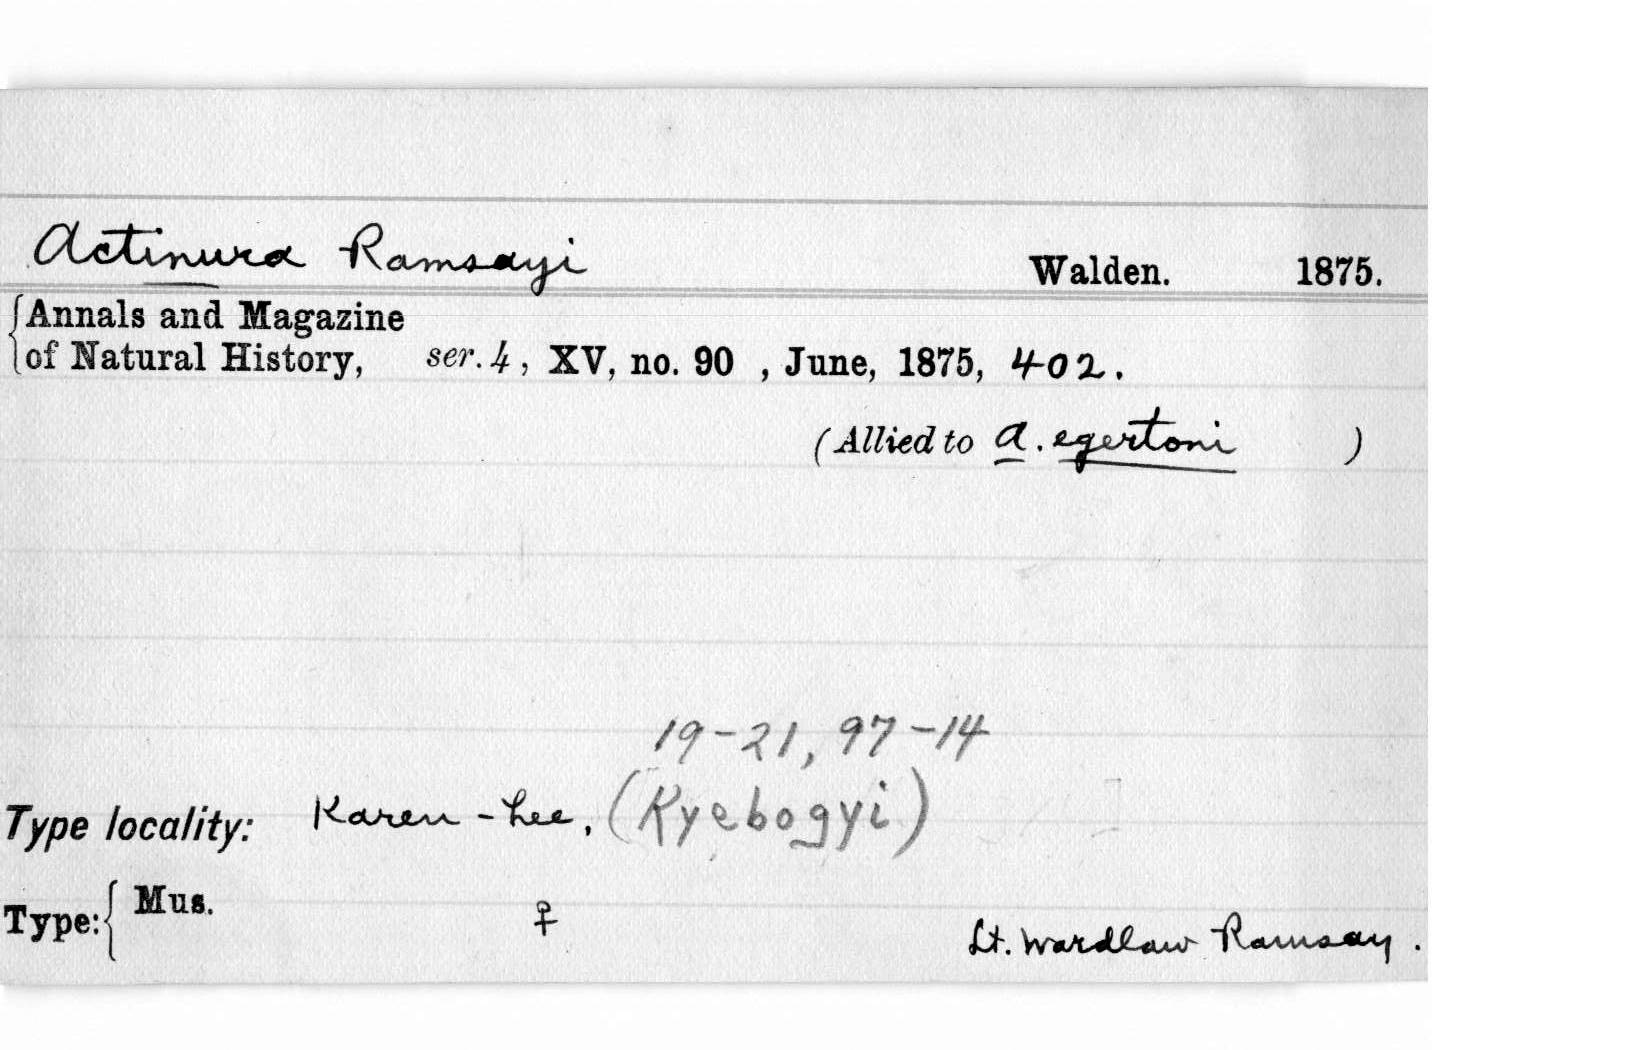 Actinura Ramsayi Walden. 1875.
Annals and Magazine
of Natural History, ser. 4, XV, no. 90 , June, 1875, 402.
(Allied to A. egertoni )
19-21, 97-14
Type locality: Karen-hee, (Kyebogyi)
Type: Mus. ♀ Lt. Wardlaw Ramsay.